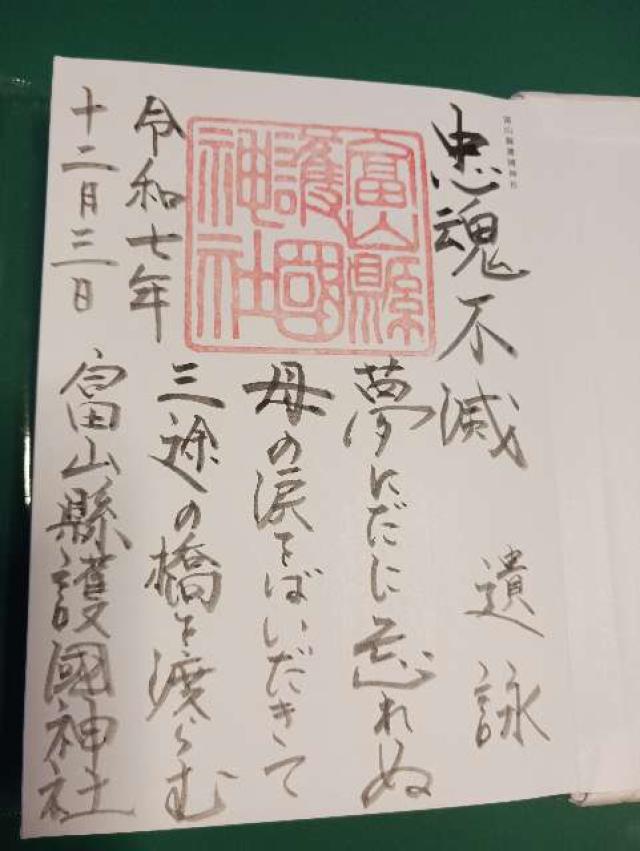 富山縣護國神社
忠魂不滅 遺詠
夢にだに忘れぬ
母の涙をばいだきて
三途の橋を渡らむ
富山縣
護國
神社
令和七年
十二月三日
富山縣護國神社